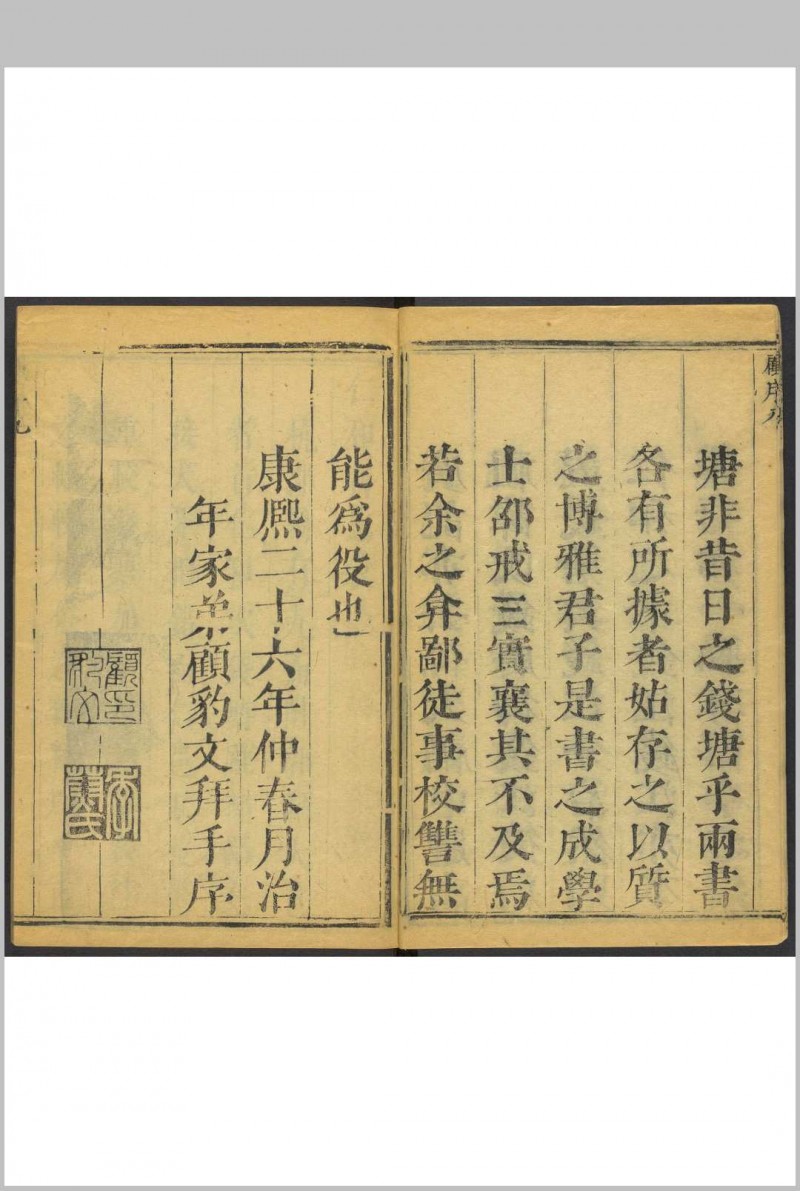 顧序八
塘非昔日之錢塘乎兩書
各有所據者姑存之以質
之博雅君子是書之成學
士邵戒三實襄其不及焉
若余之弇鄙徒事校讐無
能爲役也
康熈二十六年仲春月治
年家弟顧豹文拜手序
顧印豹文
季蔚氏
九